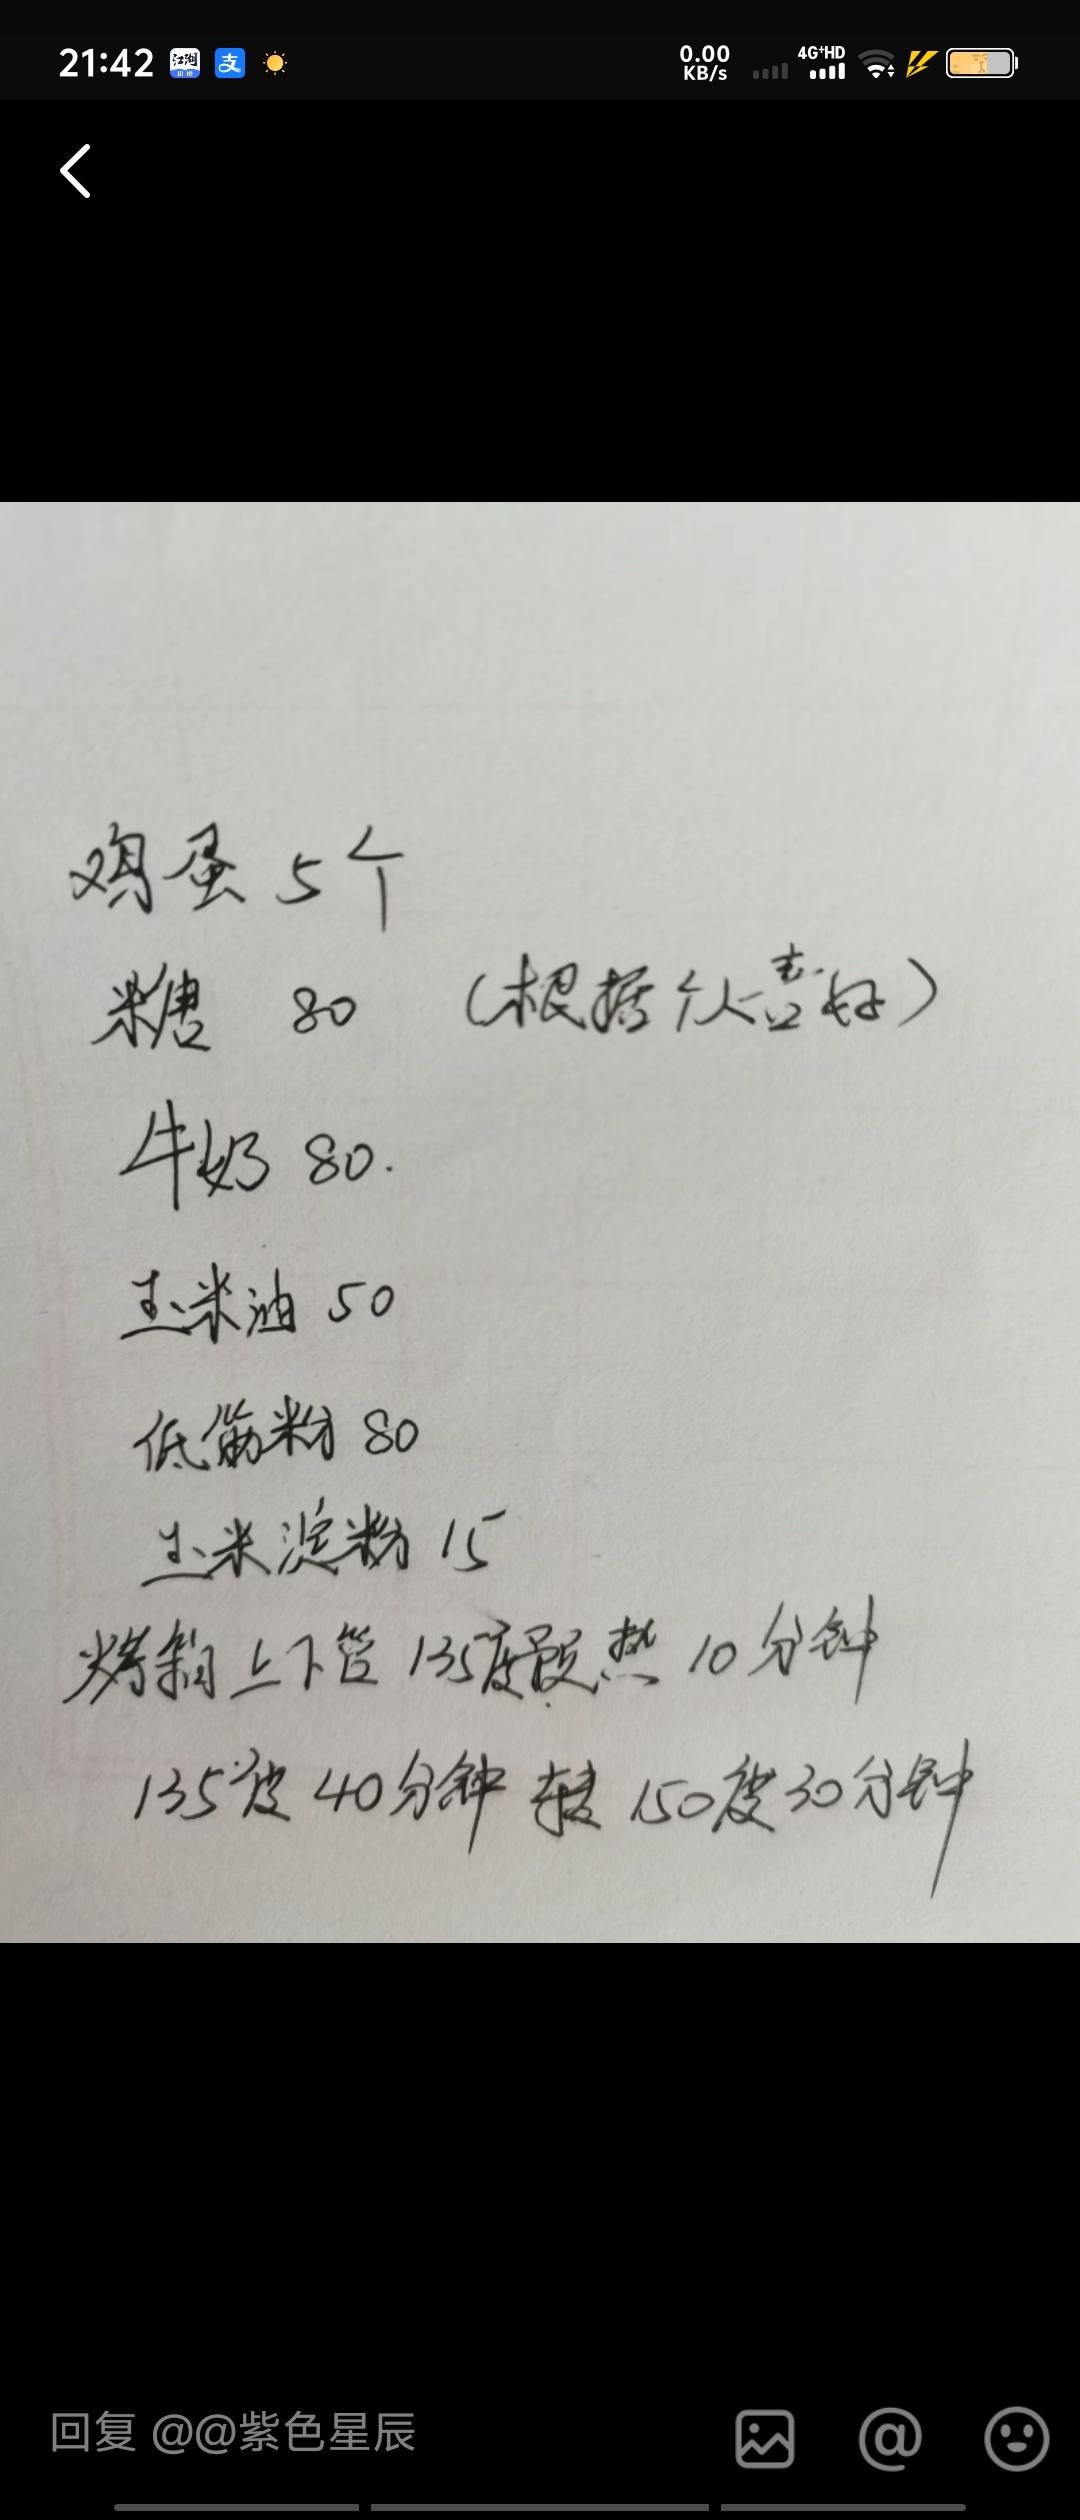 21:42
0.00 KB/s 4G+HD
鸡蛋 5个
糖 80 (根据个人喜好)
牛奶 80.
玉米油 50
低筋粉 80
玉米淀粉 15
烤箱上下管 135度预热 10分钟
135度 40分钟 转 150度30分钟
回复 @@紫色星辰